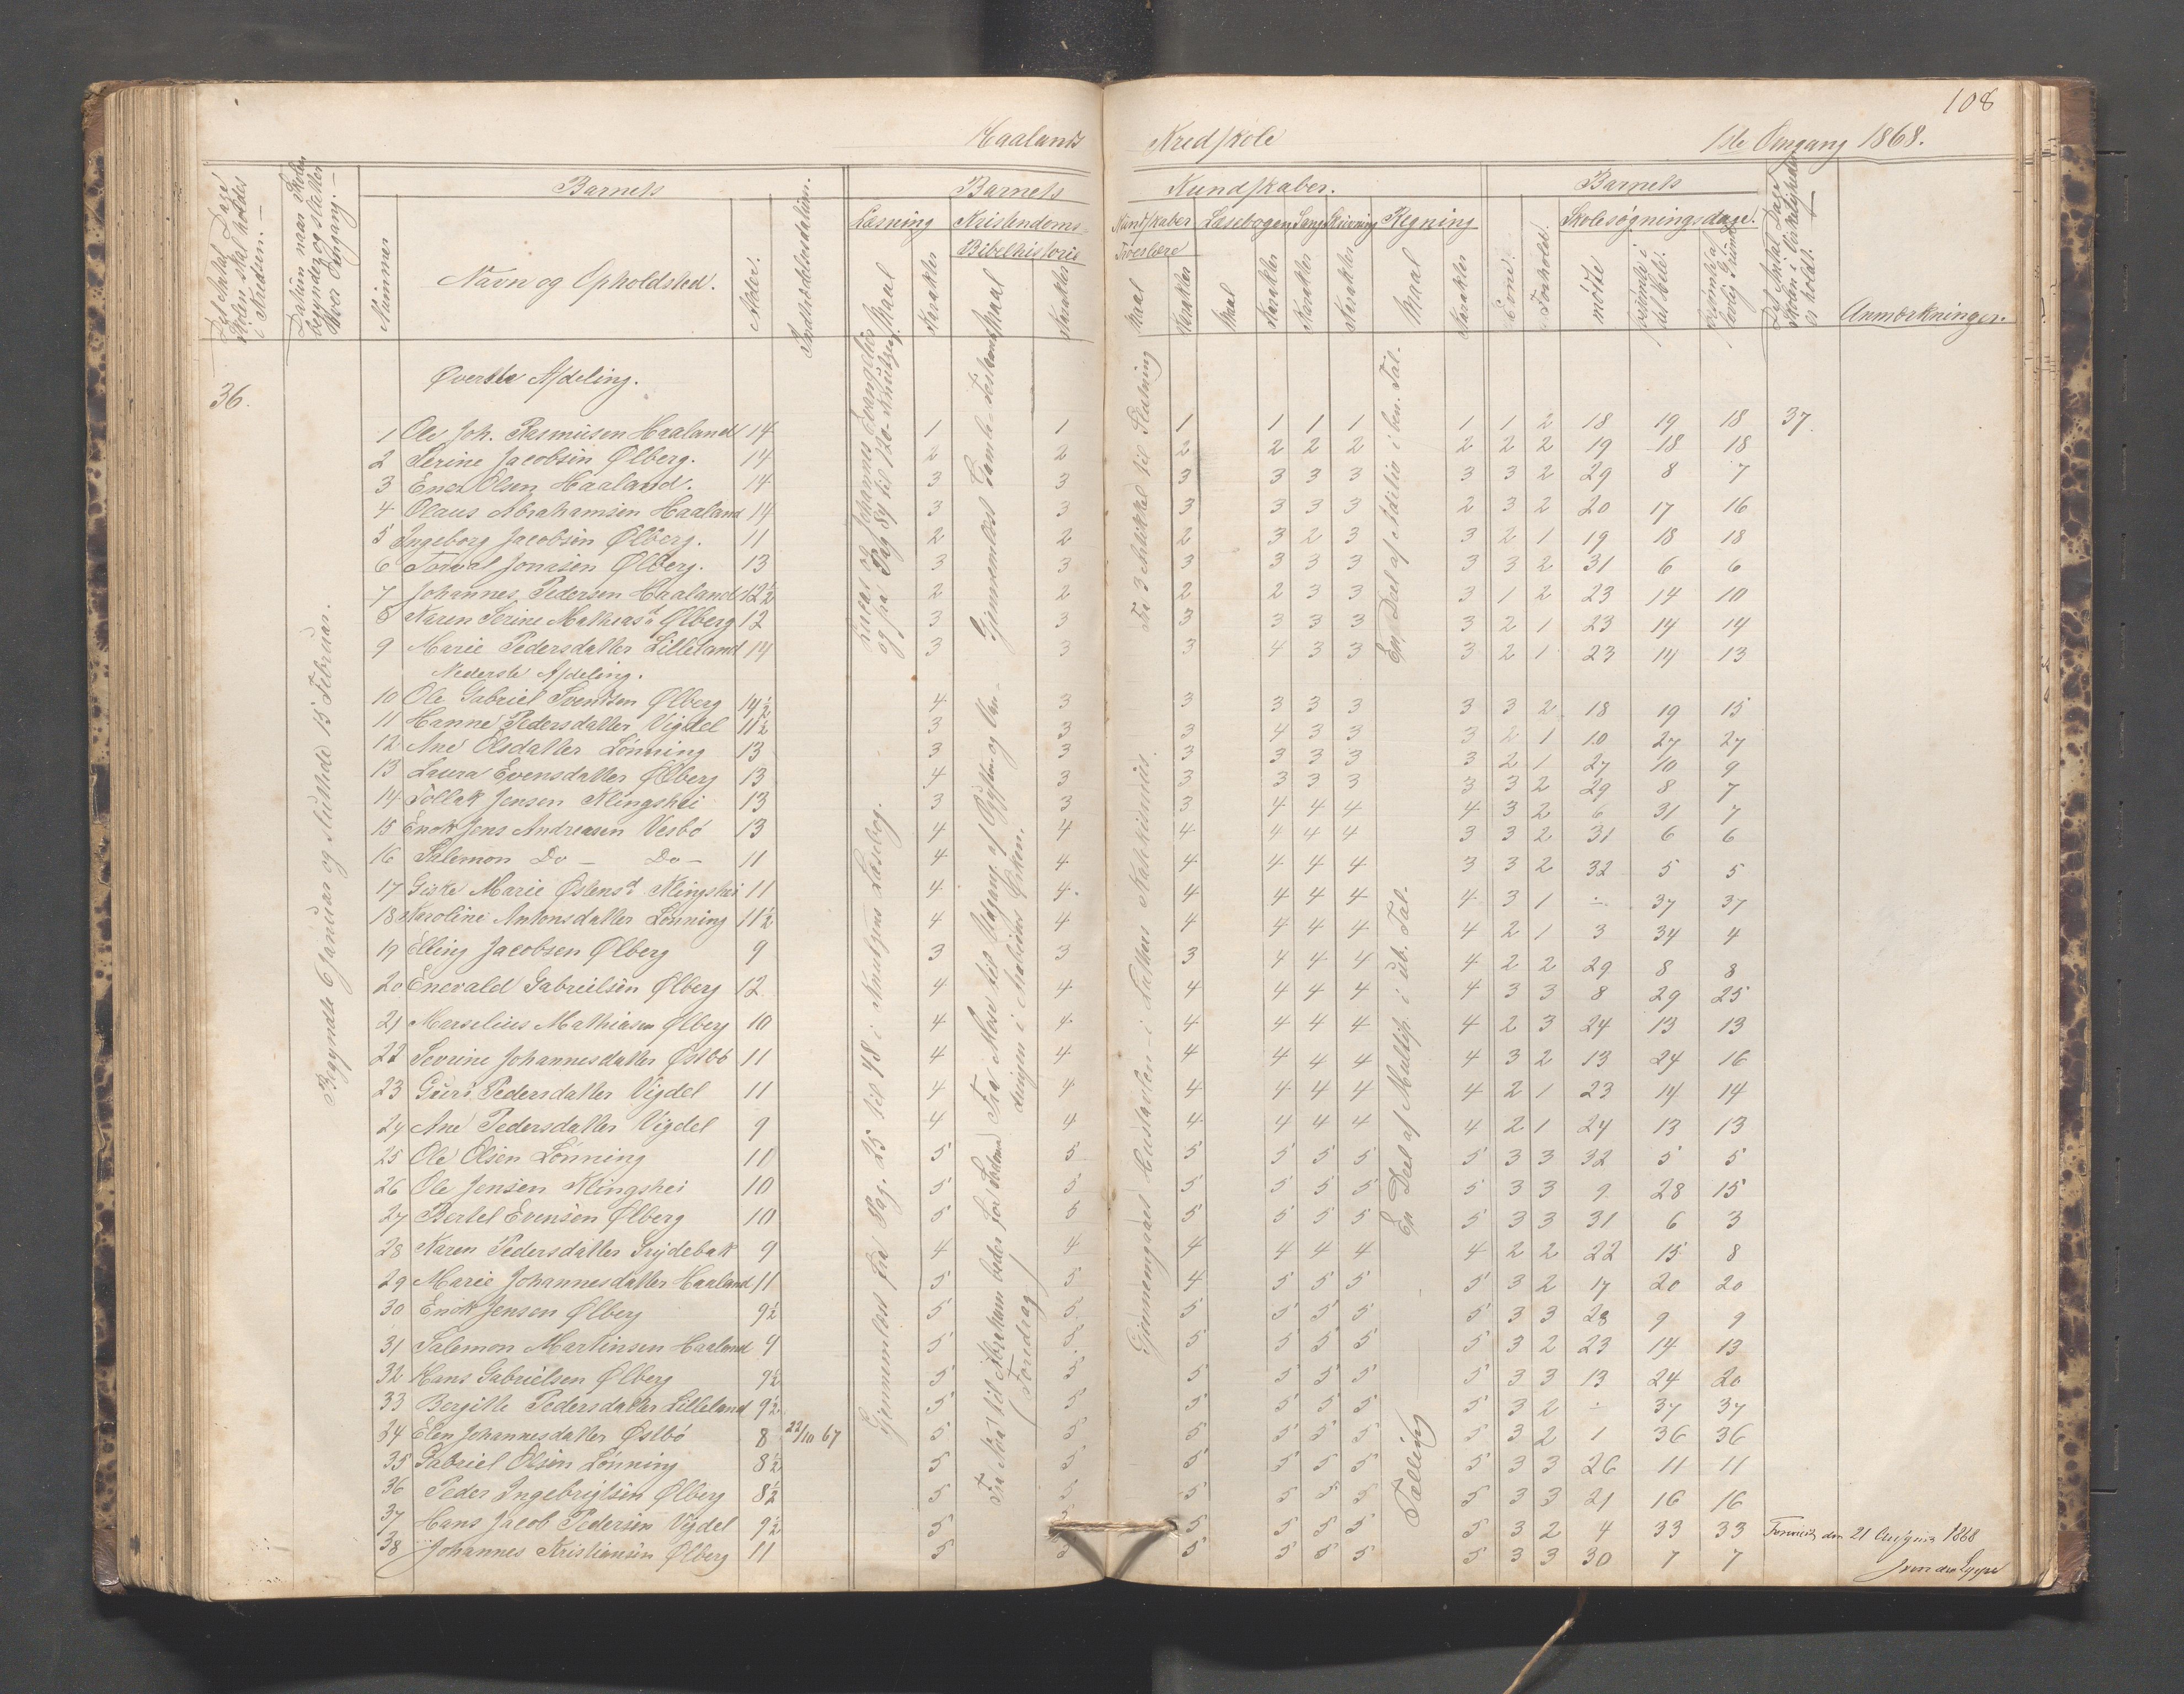 108
Haalands Kredsskole 1ste Omgang 1868.
Det Antal Dage Skolen skal holdes i Kredsen.
Datum naar Skolen begynder og slutter hver Omgang.
Barnets
Nummer
Navn og Opholdsted.
Alder.
Indtrædelsesdatum.
Barnets Kundskaber.
Læsning
Maal
Karakter
Kristendoms-Kundskaber
Bibelhistorie
Maal
Karakter
Troeslære
Maal
Karakter
Læsebogen
Maal
Karakter
Sang
Karakter
Skrivning
Karakter
Regning
Maal
Karakter
Barnets
Evne.
Forhold.
Skolesøgningsdage.
mødte
forsømte i det hele.
forsømte af lovlig Grund
Det Antal Dage Skolen i Virkeligheden er holdt.
Anmærkninger.
36.
Begyndte 6 Januar og sluttede 15 Februar.
Øverste Afdeling.
1 Ole Joh. Rasmusen Haaland 14 1 1 1 1 1 1 1 1 2 18 19 18 37.
2 Serine Jacobsen Ølberg. 14 2 2 2 2 2 2 2 2 2 19 18 18
3 Enok Olsen Haaland. 14 3 3 3 3 3 3 3 3 2 29 8 7
4 Olaus Abrahamsen Haaland 14 3 3 3 3 3 3 2 3 2 20 17 16
5 Ingeborg Jacobsen Ølberg. 11 2 2 2 3 2 3 3 2 1 19 18 18
6 Torval Jonasen Ølberg. 13 3 3 3 3 3 3 3 3 2 31 6 6
7 Johannes Pedersen Haaland 12½ 2 2 2 2 3 3 3 1 2 23 14 10
8 Karen Serine Mathiasd Ølberg 12 3 3 3 3 3 3 3 2 1 23 14 14
9 Marie Pedersdatter Lilleland 14 3 3 3 4 3 3 3 2 1 23 14 13
Nederste Afdeling.
10 Ole Gabriel Svendsen Ølberg 14½ 4 3 3 3 3 3 3 3 2 18 19 15
11 Hanne Pedersdatter Vigdel 11½ 3 3 3 4 3 3 3 2 1 10 27 27
12 Ane Olsdatter Lønning 13 3 3 3 3 3 3 3 2 1 27 10 9
13 Laura Evensdatter Ølberg 13 4 3 3 3 3 3 3 3 2 29 8 7
14 Tollak Jensen Klingshei 13 3 3 3 4 4 4 4 3 2 6 31 7
15 Enok Jens Andreasen Vesbø 13 4 4 4 4 4 4 3 3 2 31 6 6
16 Salemon Do – Do – 11 4 4 4 4 4 4 3 3 2 32 5 5
17 Giske Marie Østensd Klingshei 11 4 4. 4 4 4 4 4 3 1 ÷ 37 37
18 Karoline Antonsdatter Lønning 11½ 4 4 4 4 4 4 4 2 1 3 34 4
19 Elling Jacobsen Ølberg 9 3 3 3 4 4 4 4 2 2 29 8 8
20 Enevald Gabrielsen Ølberg 12 4 4 4 4 4 4 4 3 3 8 29 25
21 Marselius Mathiasen Ølberg 10 4 4 4 4 4 4 4 2 3 24 13 13
22 Sevrine Johannesdatter Østbø 11 4 4 4 4 4 4 4 3 2 13 24 16
23 Guri Pedersdatter Vigdel 11 4 4 4 4 4 4 4 2 1 23 14 14
24 Ane Pedersdatter Vigdel 9 4 4 4 4 4 4 4 2 1 24 13 13
25 Ole Olsen Lønning 11 5 5 5 5 5 5 5 3 3 32 5 5
26 Ole Jensen Klingshei 10 5 5 5 5 5 5 5 3 3 9 28 15
27 Bertel Evensen Ølberg 10 5 5 5 5 5 5 5 3 3 31 6 3
28 Karen Pedersdatter Snydebak 9 4 4 4 4 4 4 4 2 2 22 15 8
29 Marie Johannesdatter Haaland 11 5 5 4 5 5 5 5 3 2 17 20 20
30 Enok Jensen Ølberg 9½ 5 5 5 5 5 5 5 3 3 28 9 9
31 Salemon Martinsen Haaland 9 5 5 5 5 5 5 5 3 2 23 14 13
32 Hans Gabrielsen Ølberg 9½ 5 5 5 5 5 5 5 3 3 13 24 20
33 Bergitte Pedersdatter Lilleland 9½ 5 5 5 5 5 5 5 3 2 ÷ 37 37
34 Elen Johannesdatter Østbø 8 22/10 67 5 5 5 5 5 5 5 3 2 1 36 36
35 Gabriel Olsen Lønning 8½ 5 5 5 5 5 5 5 3 3 26 11 11
36 Peder Ingebrigtsen Ølberg 8½ 5 5 5 5 5 5 5 3 3 21 16 16
37 Hans Jacob Pedersen Vigdel 9½ 5 5 5 5 5 5 5 3 2 4 33 33
38 Johannes Kristiansen Ølberg 11 5 5 5 5 5 5 5 3 3 30 7 7
Lucas og Johannes Evangelier
og fra Pag 84 til 120 – Knutzen
Gjennemlæst Gamle Testament
Fra 3 Artikkel til Slutning
En Deel af Additio i ben. Tal.
Gjennemlæst fra Pag. 25 til 48 i Knutzens Læsebog.
Fra Noa til Abraham beder for Sodoma
(Foredrag)
Fra Mose til Udgang af Ægypten og Van-
dringen i Arabiens Ørken.
Gjennemgaaet Hustavlen i Luthers Katekismus.
En Deel af Multip. i ub. Tal.
Tælling
den 21 August 1868